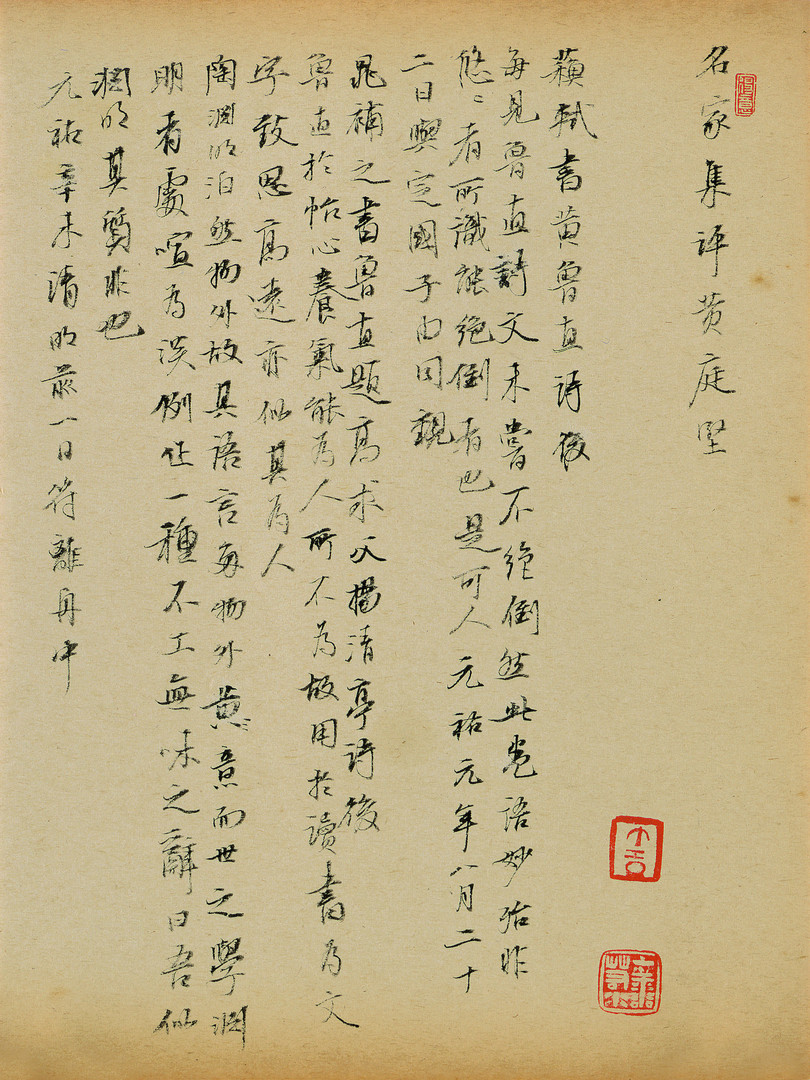 名家集评黄庭坚
蘓軾書黄魯直诗後
每見魯直詩文未嘗不絶倒然此卷语妙殆非
悠〻者所識能绝倒者已是可人元祐元年八月二十
二日與定國子由同觀
晁補之書魯直題高求父楊清亭诗後
魯直於怡心養氣能為人所不為故用於讀書為文
字致思高遠亦似其為人
陶淵明泊然物外故其语言每物外意而世之學淵
明者處喧為淡例作一種不工無味之辭曰吾似
淵明其質非也
元祐辛未清明前一日符離舟中